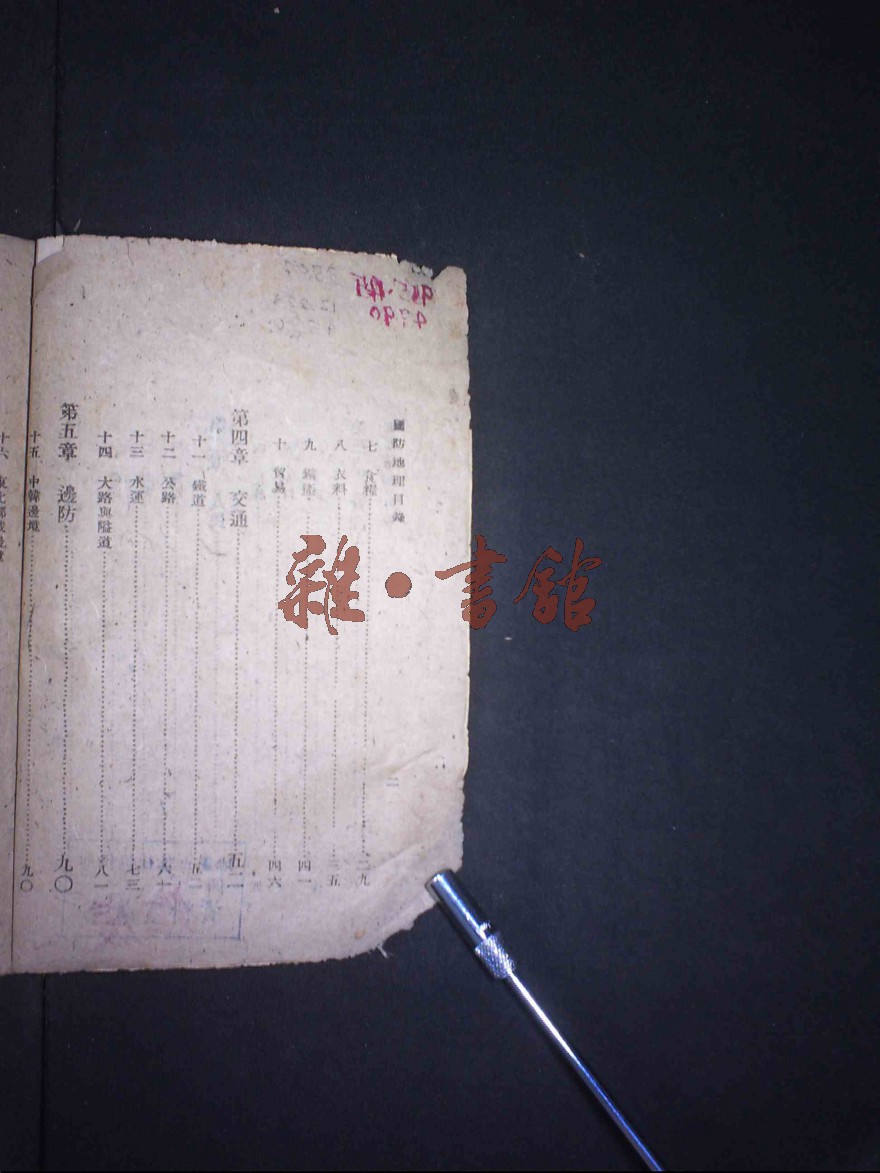 國防地理目錄
二
七 食糧 二九
八 衣料 三五
九 鑛藏 四一
十 貿易 四六
第四章 交通 五二
十一 鐵道 五二
十二 公路 六十
十三 水運 七三
十四 大路與隘道 八一
第五章 邊防 九〇
十五 中韓邊境 九〇
雜·書舘